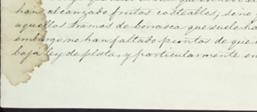 han alcanzado frutos costeables; sino
aquellas tramas de bonasca que suelo ha
embargo no han faltado puntos de que
baja ley de plata, y particularmente en